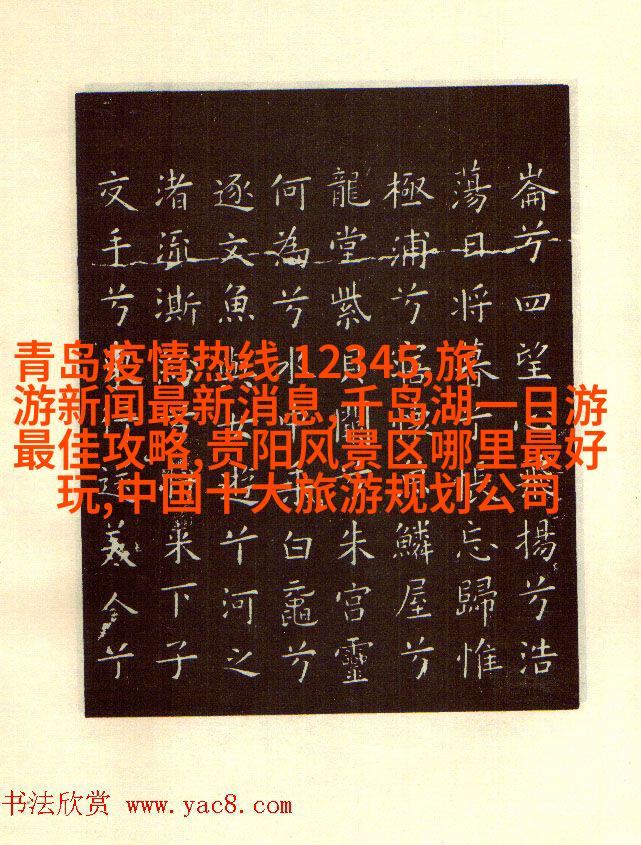 崙兮四望心揚兮浩
蕩日將暮兮悵忘歸惟
極浦兮寤懷鱗屋兮
龍堂紫貝闕兮朱宮靈
何為兮水中乘白黿兮
逐文魚與女遊兮河之
渚流澌兮來下子
交手兮東行送美人兮
青岛疫情热线 12345,旅
游新闻最新消息,千岛湖一日游
最佳攻略,贵阳风景区哪里最好
玩,中国十大旅游规划公司
书法欣赏 www.yac8.com